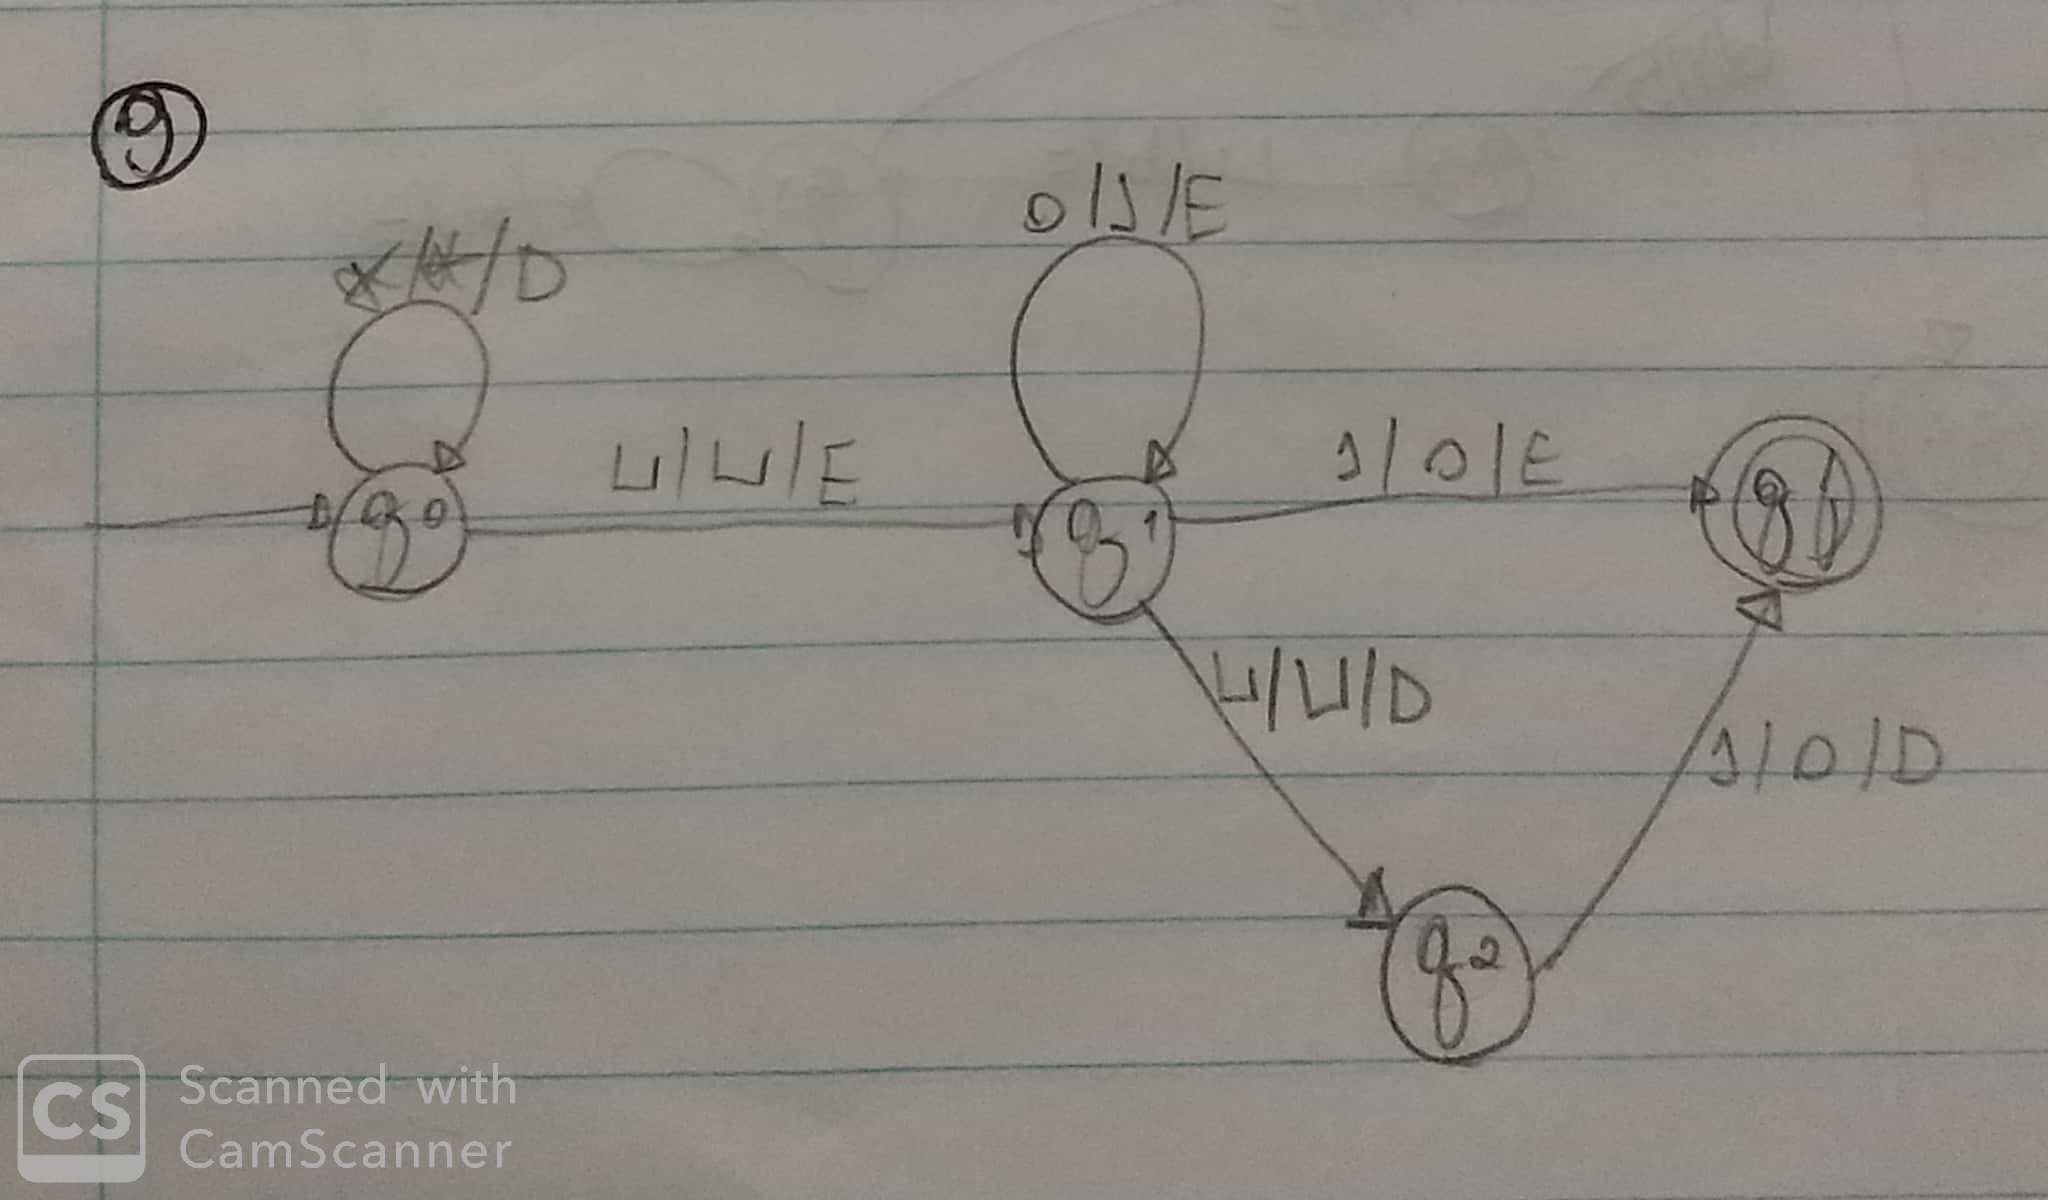 9
*/*/D
0/1/E
⊔/⊔/E
1/0/E
q0
q1
qf
⊔/⊔/D
1/0/D
q2
CS Scanned with
CamScanner